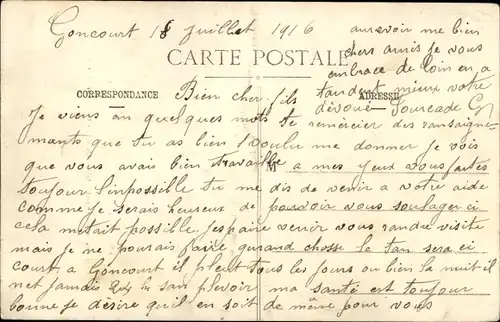 Goncourt 18 Juillet 1916
CARTE POSTALE
CORRESPONDANCE
ADRESSE
Bien cher fils
Je viens en quelques mots te remercier des ransaigne-
mants que tu as bien voulu me donner je vois
que vous avais bien travaille a mes yeux vous faites
toujour l'inpossille tu me dis de venir a votre aide
comme je serais heureux de pouvoir vous soulager ci
cela metait possible. jespaire venir vous randre visite
mais je ne pourais faire quand chosse le tan sera ci
court, a Goncourt il pleut tous les jours ou bien la nuit il
net jamais san plevoir ma santé est toujour
bonne je désire qu'il en soit de même pour vous
aurevoir me bien
chers amis je vous
embrace de loin en a
tandent mieux votre
dévoué Fourcade G
M